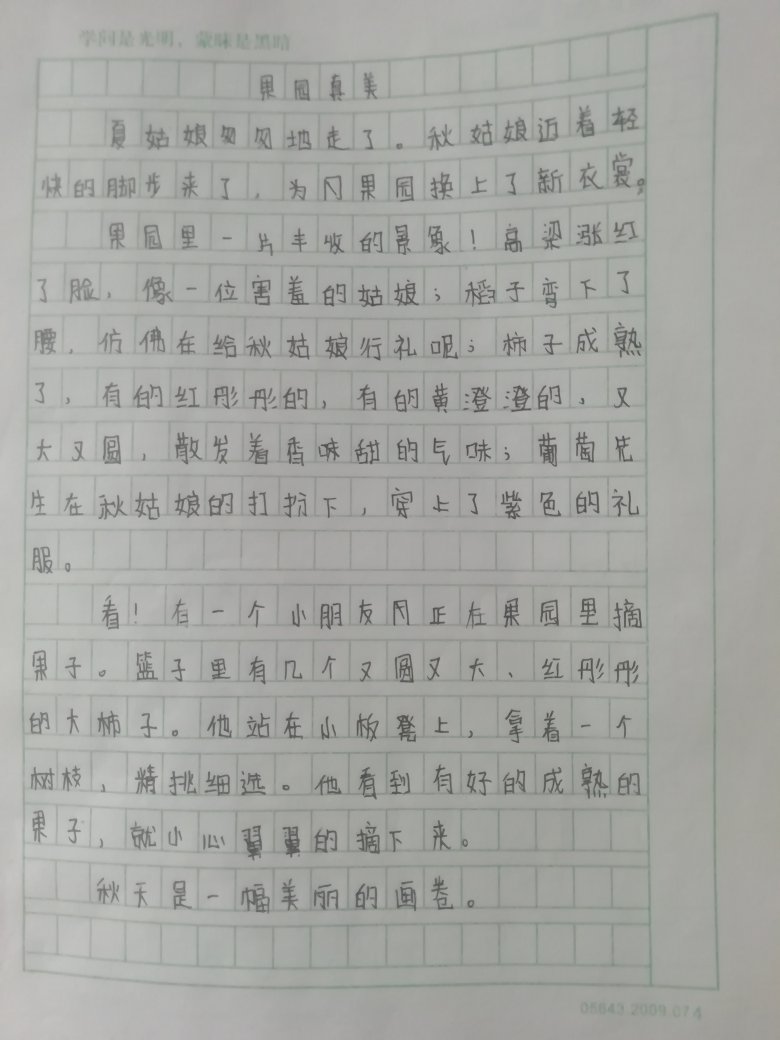 学问是光明，蒙昧是黑暗
果园真美
夏姑娘匆匆地走了。秋姑娘迈着轻
快的脚步来了，为果园换上了新衣裳。
果园里一片丰收的景象！高梁涨红
了脸，像一位害羞的姑娘；稻子弯下了
腰，仿佛在给秋姑娘行礼呢；柿子成熟
了，有的红彤彤的，有的黄澄澄的，又
大又圆，散发着香味甜的气味；葡萄先
生在秋姑娘的打扮下，穿上了紫色的礼
服。
看！有一个小朋友正在果园里摘
果子。篮子里有几个又圆又大、红彤彤
的大柿子。他站在小板凳上，拿着一个
树枝，精挑细选。他看到有好的成熟的
果子，就小心翼翼的摘下来。
秋天是一幅美丽的画卷。
05643.2009.07.4